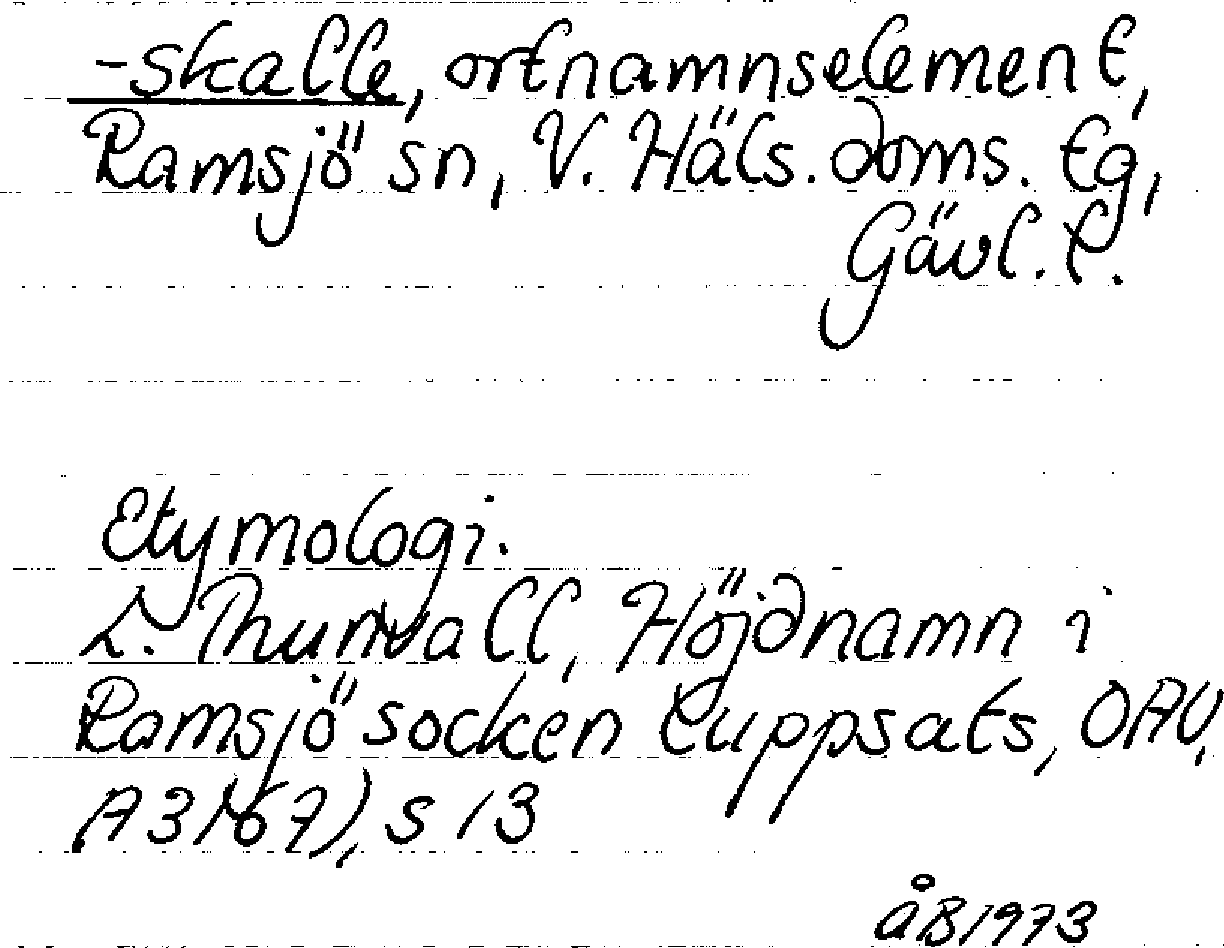 -skalle, ortnamnselement,
Ramsjö sn, V. Häls. doms. tg,
Gävl. l.
Etymologi.
L. Thunvall, Höjdnamn i
Ramsjö socken (uppsats, OAU,
A3467), s 13
åB1973